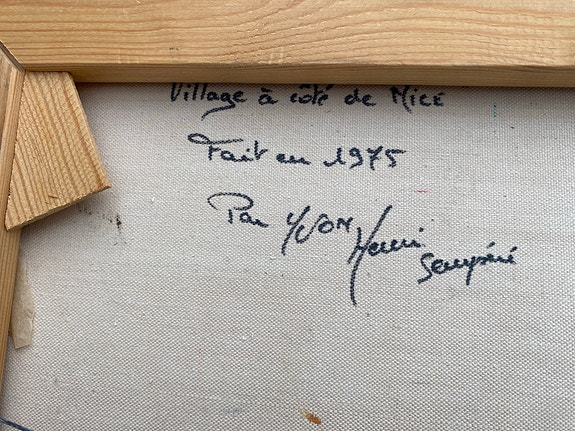 Village à côté de Nice
Fait en 1975
Par YVON Henri Sempéré